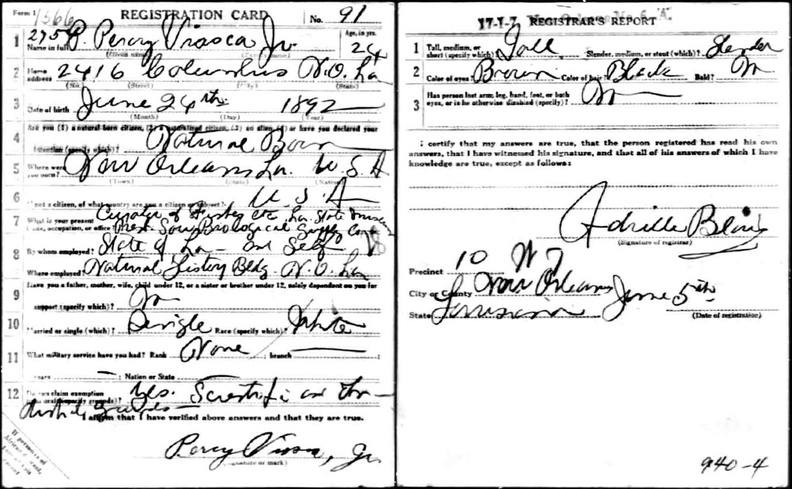 Form 1
1566
REGISTRATION CARD No. 91
2756
1 Name in full P. Percy Viosca Jr. Age, in yrs. 24
(Given name) (Family name)
2 Home address 2416 Columbus N.O. La
(No.) (Street) (City) (State)
3 Date of birth June 24th 1892
(Month) (Day) (Year)
4 Are you (1) a natural-born citizen, (2) a naturalized citizen, (3) an alien, (4) or have you declared your
intention (specify which)? Natural Born
5 Where were you born? New Orleans La. U.S.A
(Town) (State) (Nation)
6 If not a citizen, of what country are you a citizen or subject? U.S.A
7 What is your present trade, occupation, or office? Curator of etc La. State Museum
Pres. Sou. Biological Supply Co.
8 By whom employed? State of La - and Self
Where employed? Natural History Bldg. N.O. La
9 Have you a father, mother, wife, child under 12, or a sister or brother under 12, solely dependent on you for
support (specify which)? No
10 Married or single (which)? Single Race (specify which)? White
11 What military service have you had? Rank None ; branch
years ; Nation or State
12 Do you claim exemption from draft (specify grounds)? Yes. Scientific and
grounds
I affirm that I have verified above answers and that they are true.
Percy Viosca, Jr.
(Signature or mark)
If person is of African descent,
17-1-7 REGISTRAR'S REPORT
1 Tall, medium, or short (specify which)? Tall Slender, medium, or stout (which)? Slender
2 Color of eyes? Brown Color of hair? Black Bald? No
3 Has person lost arm, leg, hand, foot, or both
eyes, or is he otherwise disabled (specify)? No
I certify that my answers are true, that the person registered has read his own
answers, that I have witnessed his signature, and that all of his answers of which I have
knowledge are true, except as follows:
(Signature of registrar)
Precinct 10 W 7
City or County New Orleans June 5th
State Louisiana (Date of registration)
940-4